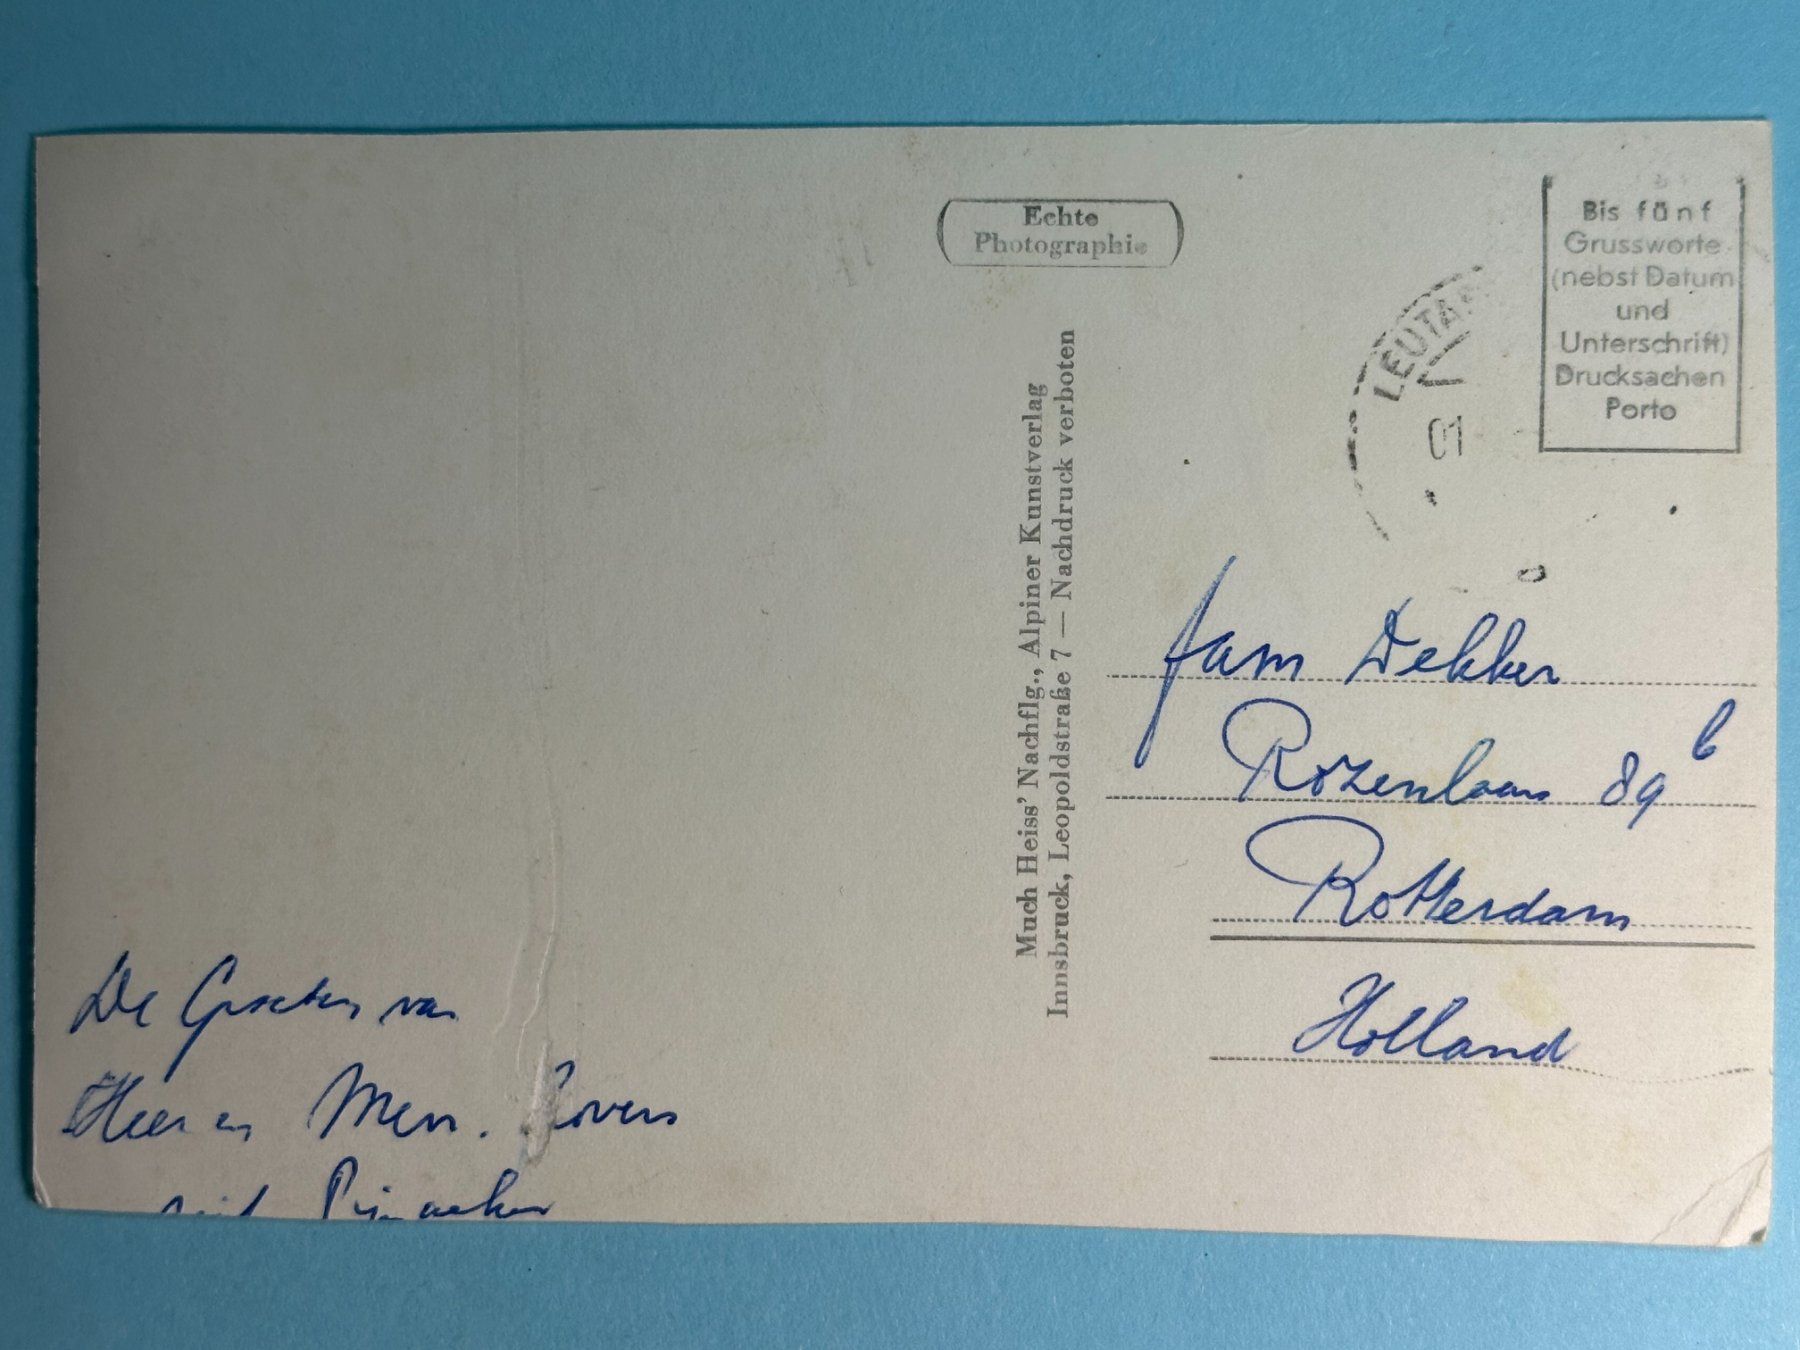 Echte
Photographie
Bis fünf
Grussworte
(nebst Datum
und
Unterschrift)
Drucksachen
Porto
LEUTA
01
Much Heiss' Nachflg., Alpiner Kunstverlag
Innsbruck, Leopoldstraße 7 — Nachdruck verboten
fam Dekker
Rozenlaan 89 b
Rotterdam
Holland
De Groeten van
Heer en Mevr. Rovers
uit Pijnacker